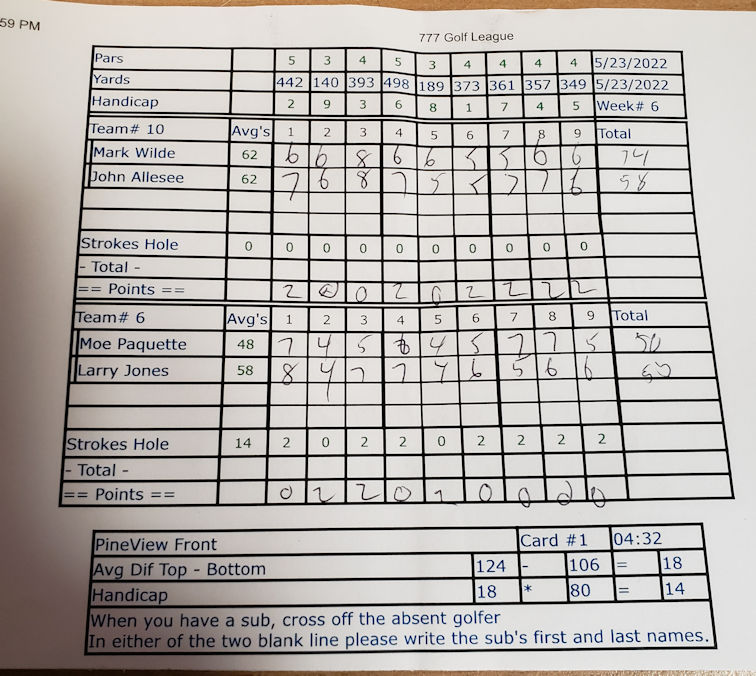 59 PM
777 Golf League
Pars 5 3 4 5 3 4 4 4 4 5/23/2022
Yards 442 140 393 498 189 373 361 357 349 5/23/2022
Handicap 2 9 3 6 8 1 7 4 5 Week# 6
Team# 10 Avg's 1 2 3 4 5 6 7 8 9 Total
Mark Wilde 62 6 6 8 6 6 5 5 6 6
John Allesee 62 7 6 8 7 5 5 7 7 6 58
Strokes Hole 0 0 0 0 0 0 0 0 0 0
- Total -
== Points == 2 0 2 0 2 2 2 2
Team# 6 Avg's 1 2 3 4 5 6 7 8 9 Total
Moe Paquette 48 7 4 5 4 5 7 7 5 50
Larry Jones 58 8 4 7 7 4 6 5 6 6
Strokes Hole 14 2 0 2 2 0 2 2 2 2
- Total -
== Points == 0 2 2 0 2 0 0 0 0
PineView Front Card #1 04:32
Avg Dif Top - Bottom 124 - 106 = 18
Handicap 18 * 80 = 14
When you have a sub, cross off the absent golfer
In either of the two blank line please write the sub's first and last names.